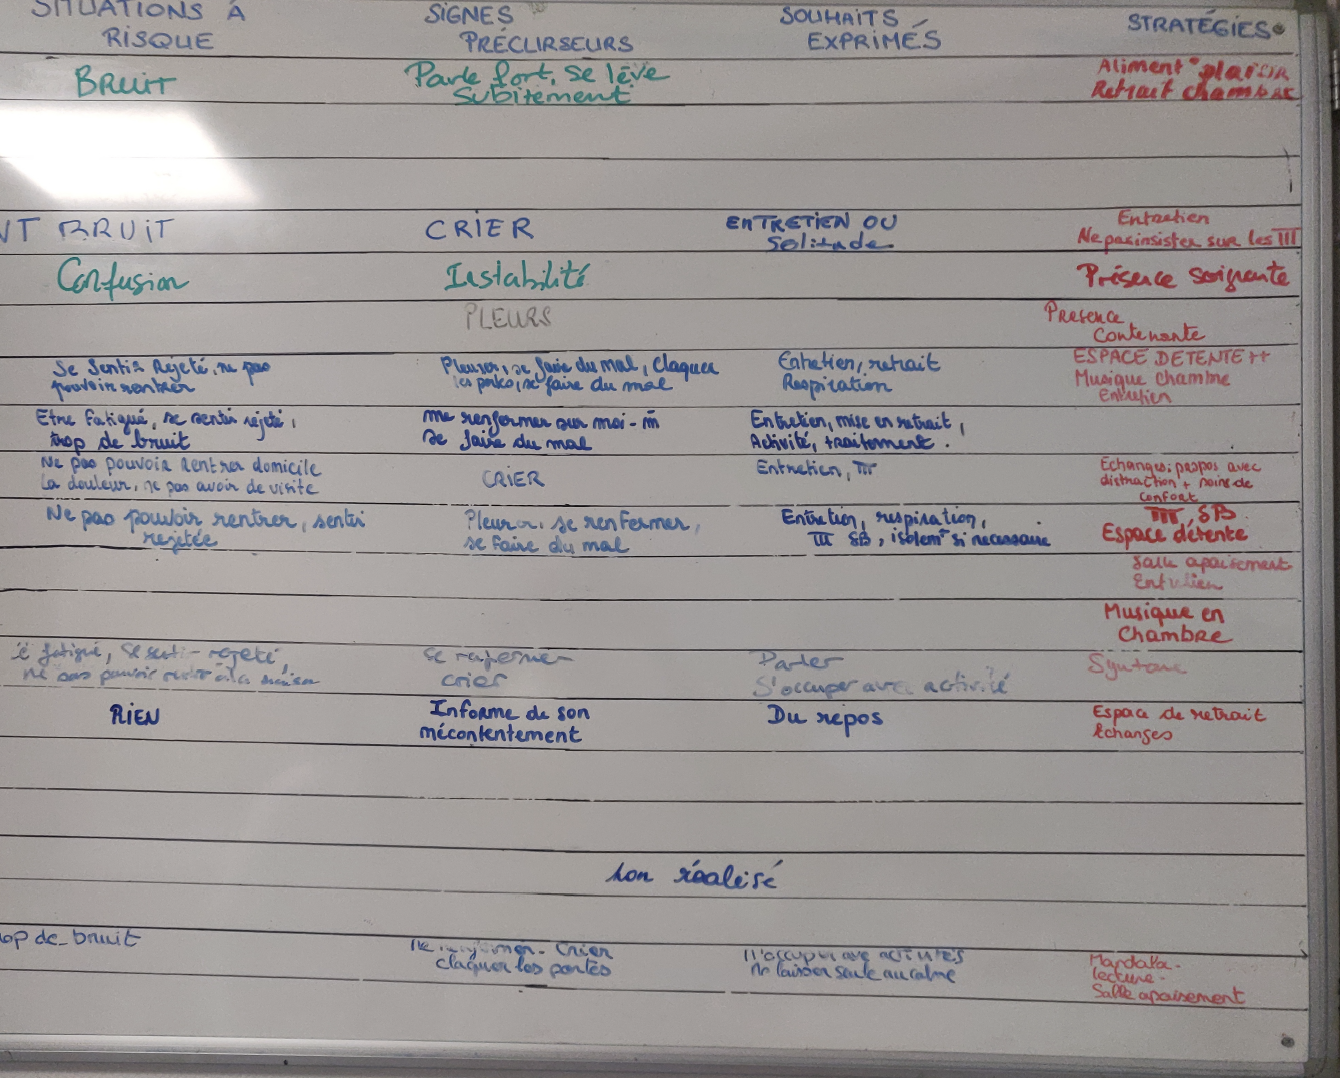 SITUATIONS À
RISQUE
SIGNES
PRÉCURSEURS
SOUHAITS
EXPRIMÉS
STRATÉGIES
BRUIT
Parle fort, se lève
subitement
Aliment "plaisir
Retrait chambre
NT BRUIT
CRIER
ENTRETIEN OU
Solitude
Entretien
Ne pas insister sur les TTT
Confusion
Instabilité
Présence soignante
PLEURS
Presence
Contenante
Se Sentir Rejeté, ne pas
pouvoir rentrer
Pleurer, se faire du mal, Claquer
les portes, se faire du mal
Entretien, retrait
Respiration
ESPACE DETENTE ++
Musique chambre
Entretien
Etre fatigué, se sentir rejeté,
trop de bruit
me renfermer sur moi-m̄
se faire du mal
Entretien, mise en retrait,
Activité, traitement.
Ne pas pouvoir rentrer domicile
la douleur, ne pas avoir de visite
CRIER
Entretien, TTT
Echanges, propos avec
distraction + soins de
confort
Ne pas pouvoir rentrer, sentir
rejetée
Pleurer, se renfermer,
se faire du mal
Entretien, respiration,
TTT SB, isolemt si necessaire
TTT SB
Espace détente
Salle apaisement
Entretien
Musique en
chambre
fatigué, se sentir rejeté,
ne pas pouvoir à la maison
se renfermer
crier
Parler
S'occuper avec activité
RIEN
Informe de son
mécontentement
Du repos
Espace de retrait
échanges
non réalisé
op de bruit
Crier
claquer les portes
M'occuper avec activités
me laisser seule au calme
Mandala -
lecture -
Salle apaisement